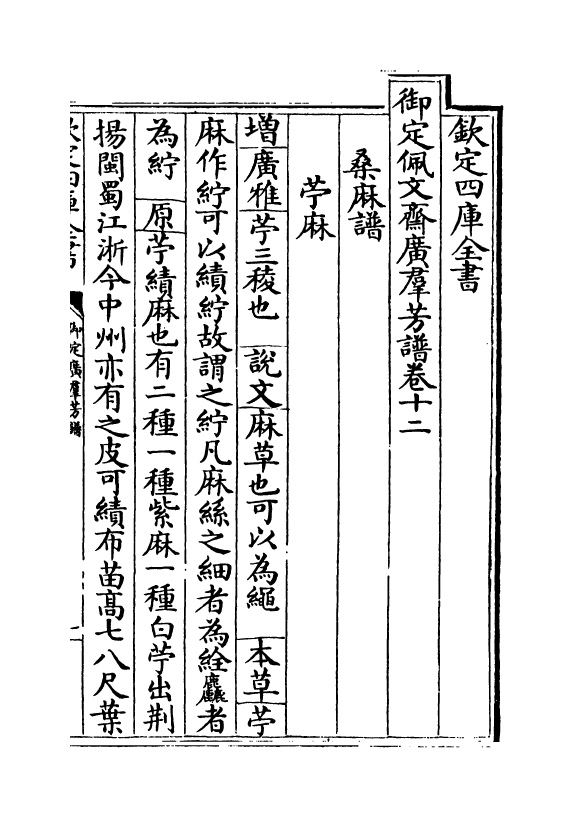 欽定四庫全書
御定佩文齋廣羣芳譜卷十二
桑麻譜
苧麻
增廣雅苧三稜也 說文麻草也可以為繩 本草苧
麻作紵可以績紵故謂之紵凡麻絲之細者為絟麤者
為紵 原苧績麻也有二種一種紫麻一種白苧出荆
揚閩蜀江浙今中州亦有之皮可績布苗高七八尺葉
欽定四庫全書
御定廣羣芳譜